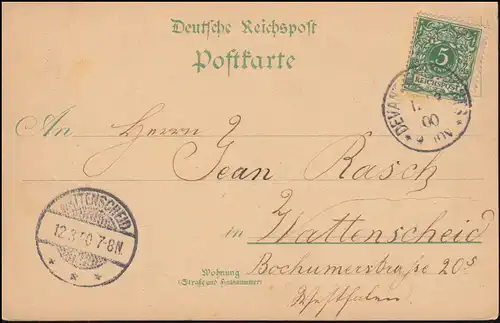 Deutsche Reichspost
Postkarte
5
REICHSPOST
00
An Herrn
Jean Rasch
in Wattenscheid
Wohnung
(Straße und Hausnummer)
Bochumerstraße 20
Westfalen.
WATTENSCHEID
12.3.00 7-8N.